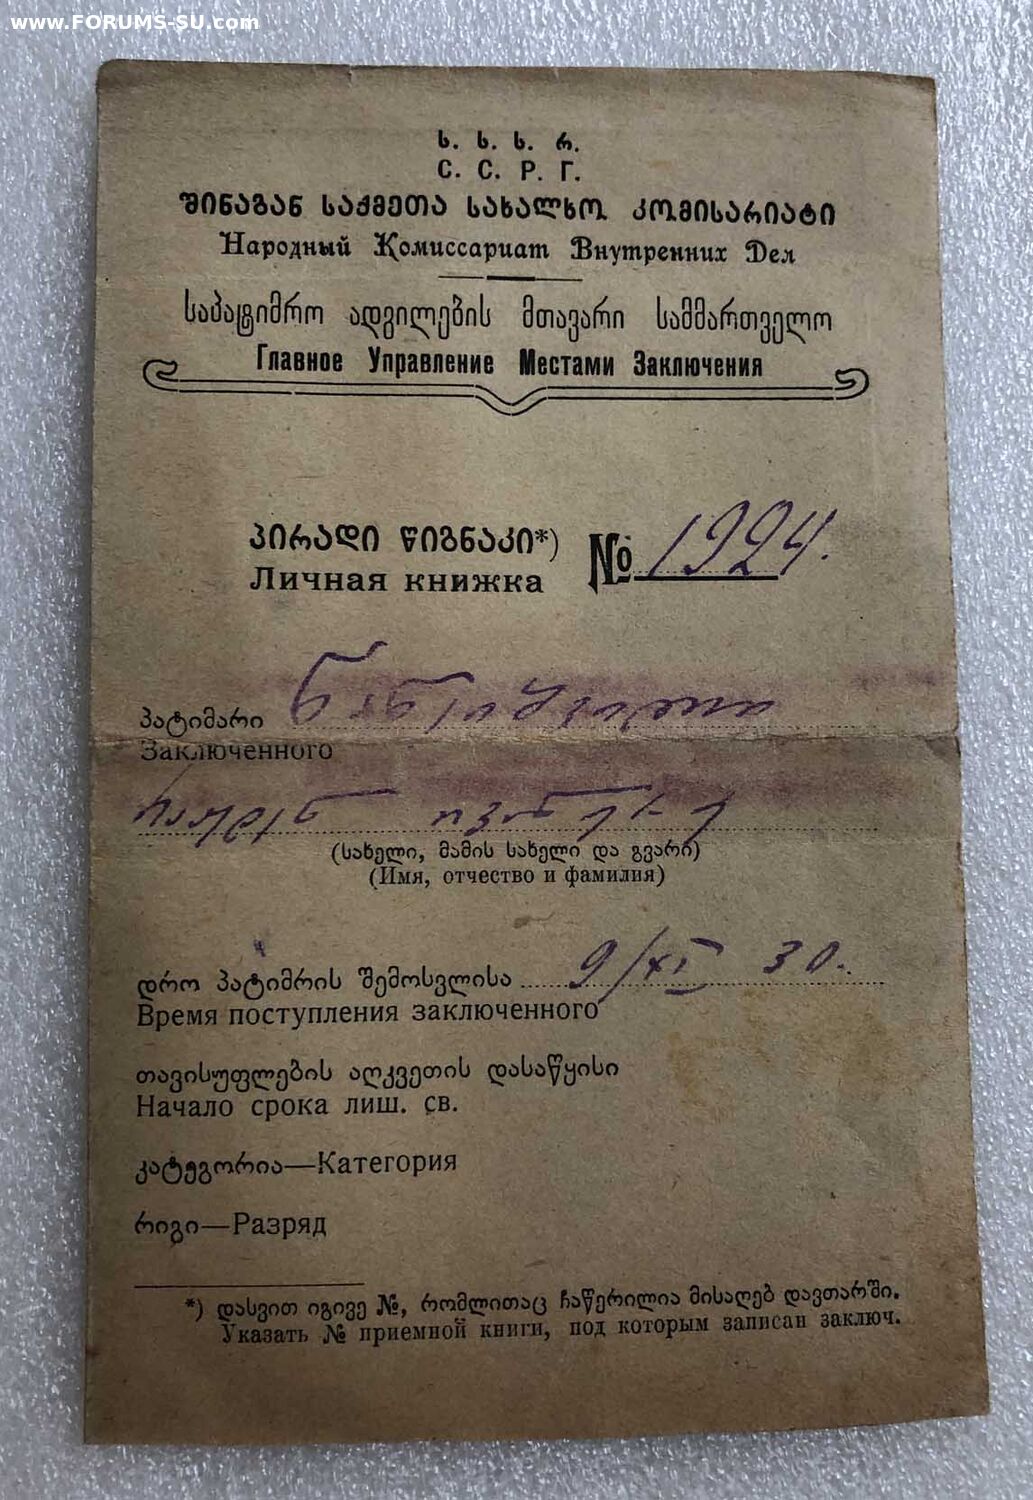 www.FORUMS-SU.com
ს. ს. ს. რ.
С. С. Р. Г.
შინაგან საქმეთა სახალხო კომისარიატი
Народный Комиссариат Внутренних Дел
საპატიმრო ადგილების მთავარი სამმართველო
Главное Управление Местами Заключения
პირადი წიგნაკი*) № 1924.
Личная книжка
პატიმარი
Заключенного
(სახელი, მამის სახელი და გვარი)
(Имя, отчество и фамилия)
დრო პატიმრის შემოსვლისა 9/XI 30.
Время поступления заключенного
თავისუფლების აღკვეთის დასაწყისი
Начало срока лиш. св.
კატეგორია—Категория
რიგი—Разряд
*) დასვით იგივე №, რომლითაც ჩაწერილია მისაღებ დავთარში.
Указать № приемной книги, под которым записан заключ.